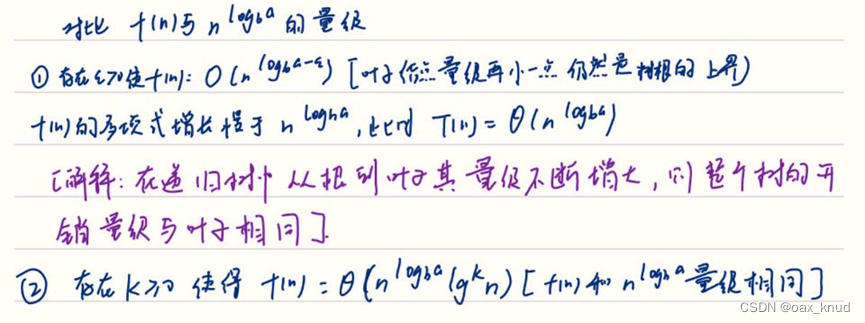 对比 f(n)与 n^log_b a 的量级
① 存在ε>0使f(n): O(n^(log_b a-ε)) [叶子结点量级再小一点 仍然是树根的上界)
f(n)的多项式增长慢于 n^log_b a, 此时 T(n)=θ(n^log_b a)
[解释: 在递归树中 从根到叶子其量级不断增大, 则整个树的开
销量级与叶子相同].
② 存在 k≥0 使得 f(n)=θ(n^log_b a lg^k n) [f(n)和 n^log_b a 量级相同]
CSDN @oax_knud